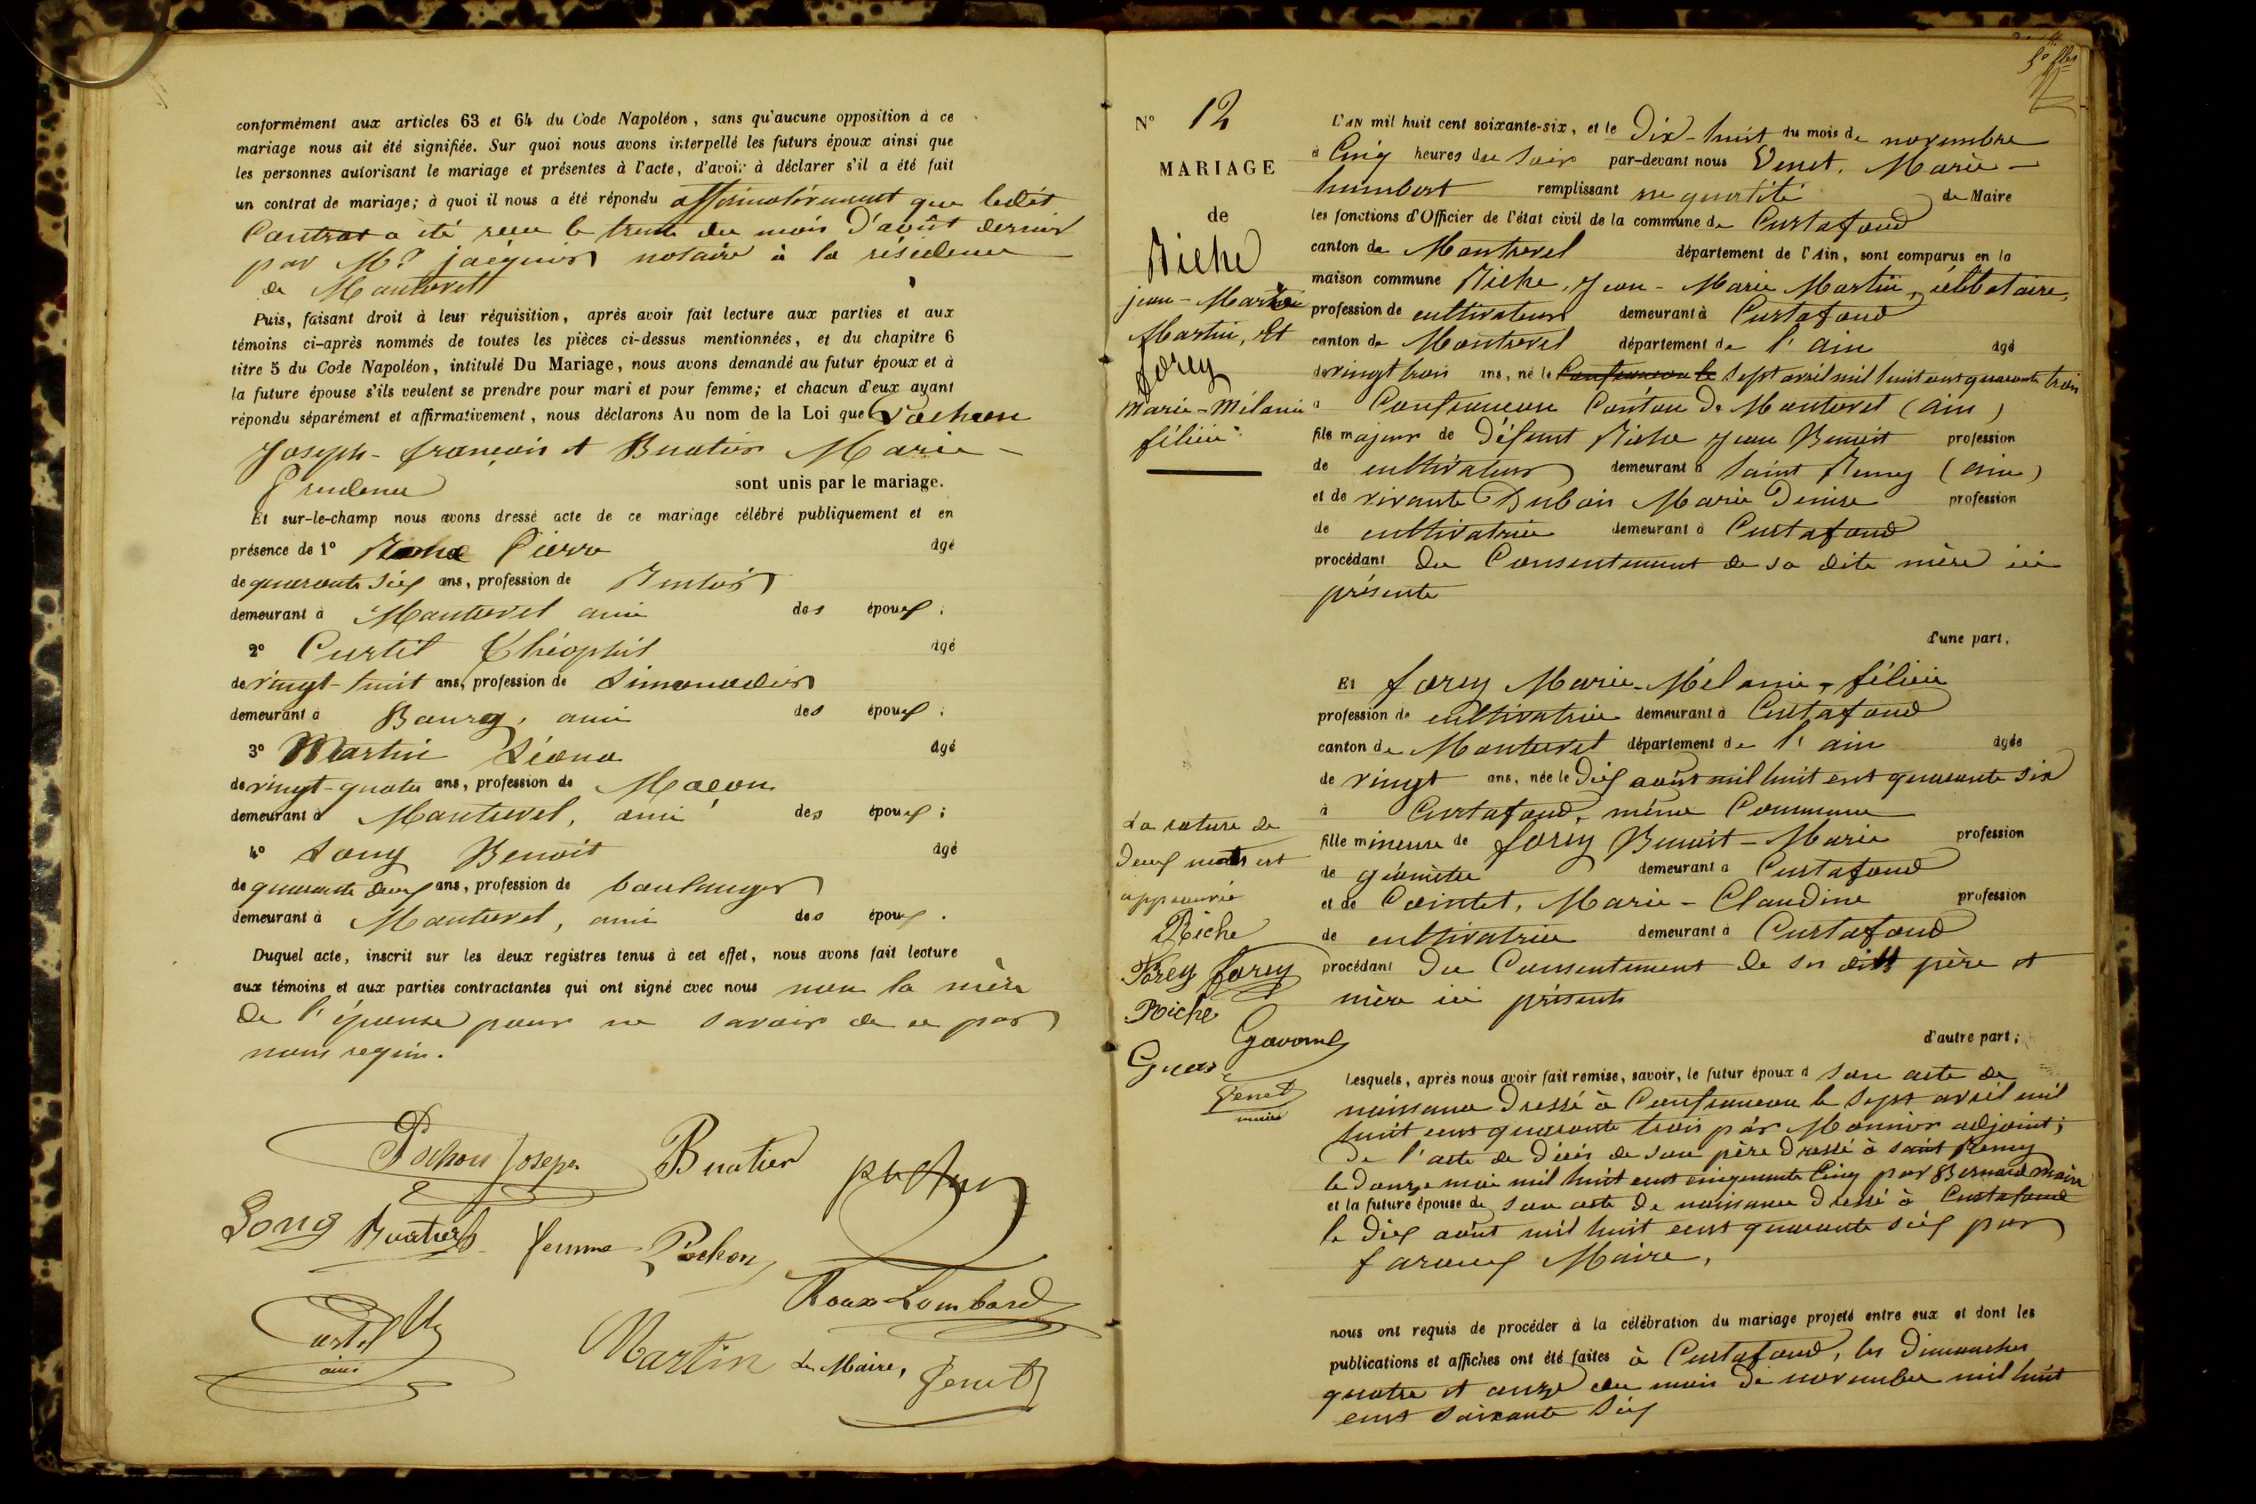 conformément aux articles 63 et 64 du Code Napoléon, sans qu'aucune opposition à ce
mariage nous ait été signifiée. Sur quoi nous avons interpellé les futurs époux ainsi que
les personnes autorisant le mariage et présentes à l'acte, d'avoir à déclarer s'il a été fait
un contrat de mariage; à quoi il nous a été répondu affirmativement que ledit
Contrat a été reçu le trente du mois d'août dernier
par Me jacquier notaire à la résidence
de Montrevel
Puis, faisant droit à leur réquisition, après avoir fait lecture aux parties et aux
témoins ci-après nommés de toutes les pièces ci-dessus mentionnées, et du chapitre 6
titre 5 du Code Napoléon, intitulé Du Mariage, nous avons demandé au futur époux et à
la future épouse s'ils veulent se prendre pour mari et pour femme; et chacun d'eux ayant
répondu séparément et affirmativement, nous déclarons Au nom de la Loi que Pochon
Joseph-françois et Buatier Marie-
Prudence sont unis par le mariage.
Et sur-le-champ nous avons dressé acte de ce mariage célébré publiquement et en
présence de 1° Pierre âgé
de quarante six ans, profession de Rentier
demeurant à Montrevel ami des époux;
2° Curtil Théophil âgé
de vingt-huit ans, profession de Limonadier
demeurant à Bourg, ami des époux;
3° Martin Léono âgé
de vingt-quatre ans, profession de Maçon
demeurant à Montrevel, ami des époux;
4° Long Benoit âgé
de quarante deux ans, profession de boulanger
demeurant à Montrevel, ami des époux.
Duquel acte, inscrit sur les deux registres tenus à cet effet, nous avons fait lecture
aux témoins et aux parties contractantes qui ont signé avec nous non la mère
de l'épouse pour ne savoir de ce par
nous requis.
Pochon Joseph Buatier
Long Buatier femme Pochon
Roux Lombard
Curtil
ami
Martin Le Maire, Venet
N° 12
MARIAGE
de
Riche
jean-Marie
Martin, Et
forey
Marie-Mélanie
félicie
La rature de
deux mots est
approuvée
Riche
Forey forey
Riche
Gavand
Guer
Venet
maire
L'AN mil huit cent soixante-six, et le Dix-huit du mois de novembre
à Cinq heures du soir par-devant nous Venet, Marie-
humbert remplissant en qualité de Maire
les fonctions d'Officier de l'état civil de la commune de Curtafond
canton de Montrevel département de l'Ain, sont comparus en la
maison commune Riche, Jean-Marie Martin, célibataire,
profession de cultivateur demeurant à Curtafond
canton de Montrevel département de l'ain âgé
de vingt trois ans, né le Confrancon le sept avril mil huit cent quarante trois
à Confrancon Canton de Montrevel (ain)
fils majeur de défunt Riche Jean Benoit profession
de cultivateur demeurant à Saint Remy (ain)
et de vivante Dubois Marie Denise profession
de cultivatrice demeurant à Curtafond
procédant du Consentement de sa dite mère ici
présente
d'une part,
Et forey Marie-Mélanie-félicie
profession de cultivatrice demeurant à Curtafond
canton de Montrevel département de l'ain âgée
de vingt ans, née le dix août mil huit cent quarante six
à Curtafond, même Commune
fille mineure de forey Benoit-Marie profession
de géomètre demeurant à Curtafond
et de Cointet, Marie-Claudine profession
de cultivatrice demeurant à Curtafond
procédant du Consentement de ses dits père et
mère ici présents
d'autre part;
Lesquels, après nous avoir fait remise, savoir, le futur époux d son acte de
naissance dressé à Confrancon le sept avril mil
huit cent quarante trois par Monnier adjoint;
de l'acte de décès de son père dressé à saint Remy
le douze mai mil huit cent cinquante Cinq par Bernard maire
et la future épouse de son acte de naissance dressé à Curtafond
le dix août mil huit cent quarante six par
faroux Maire,
nous ont requis de procéder à la célébration du mariage projeté entre eux et dont les
publications et affiches ont été faites à Curtafond, les dimanches
quatre et onze du mois de novembre mil huit
cent soixante six